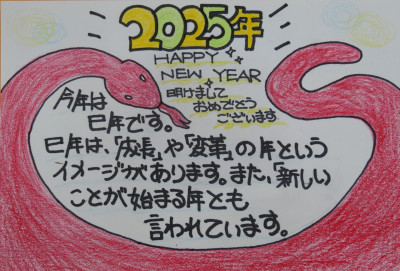 2025年
HAPPY
NEW YEAR
明けまして
おめでとう
ございます
今年は
巳年です。
巳年は、「成長」や「変革」の年という
イメージがあります。また、「新しい
ことが始まる年とも
言われています。